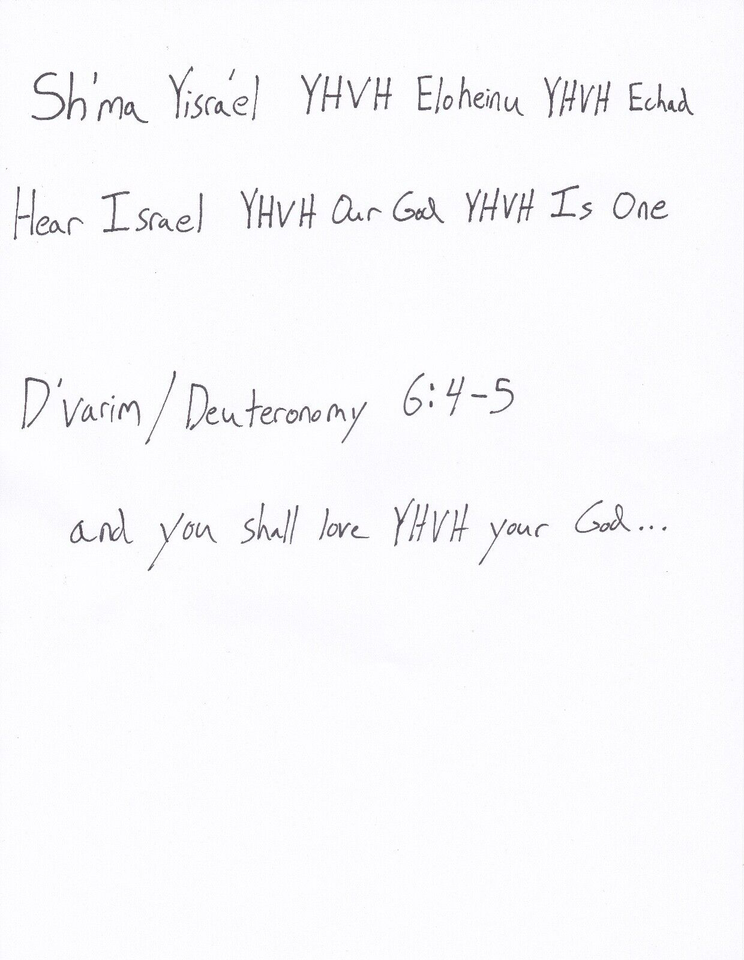 Sh'ma Yisra'el YHVH Eloheinu YHVH Echad
Hear Israel YHVH Our God YHVH Is One
D'varim/Deuteronomy 6:4-5
and you shall love YHVH your God...